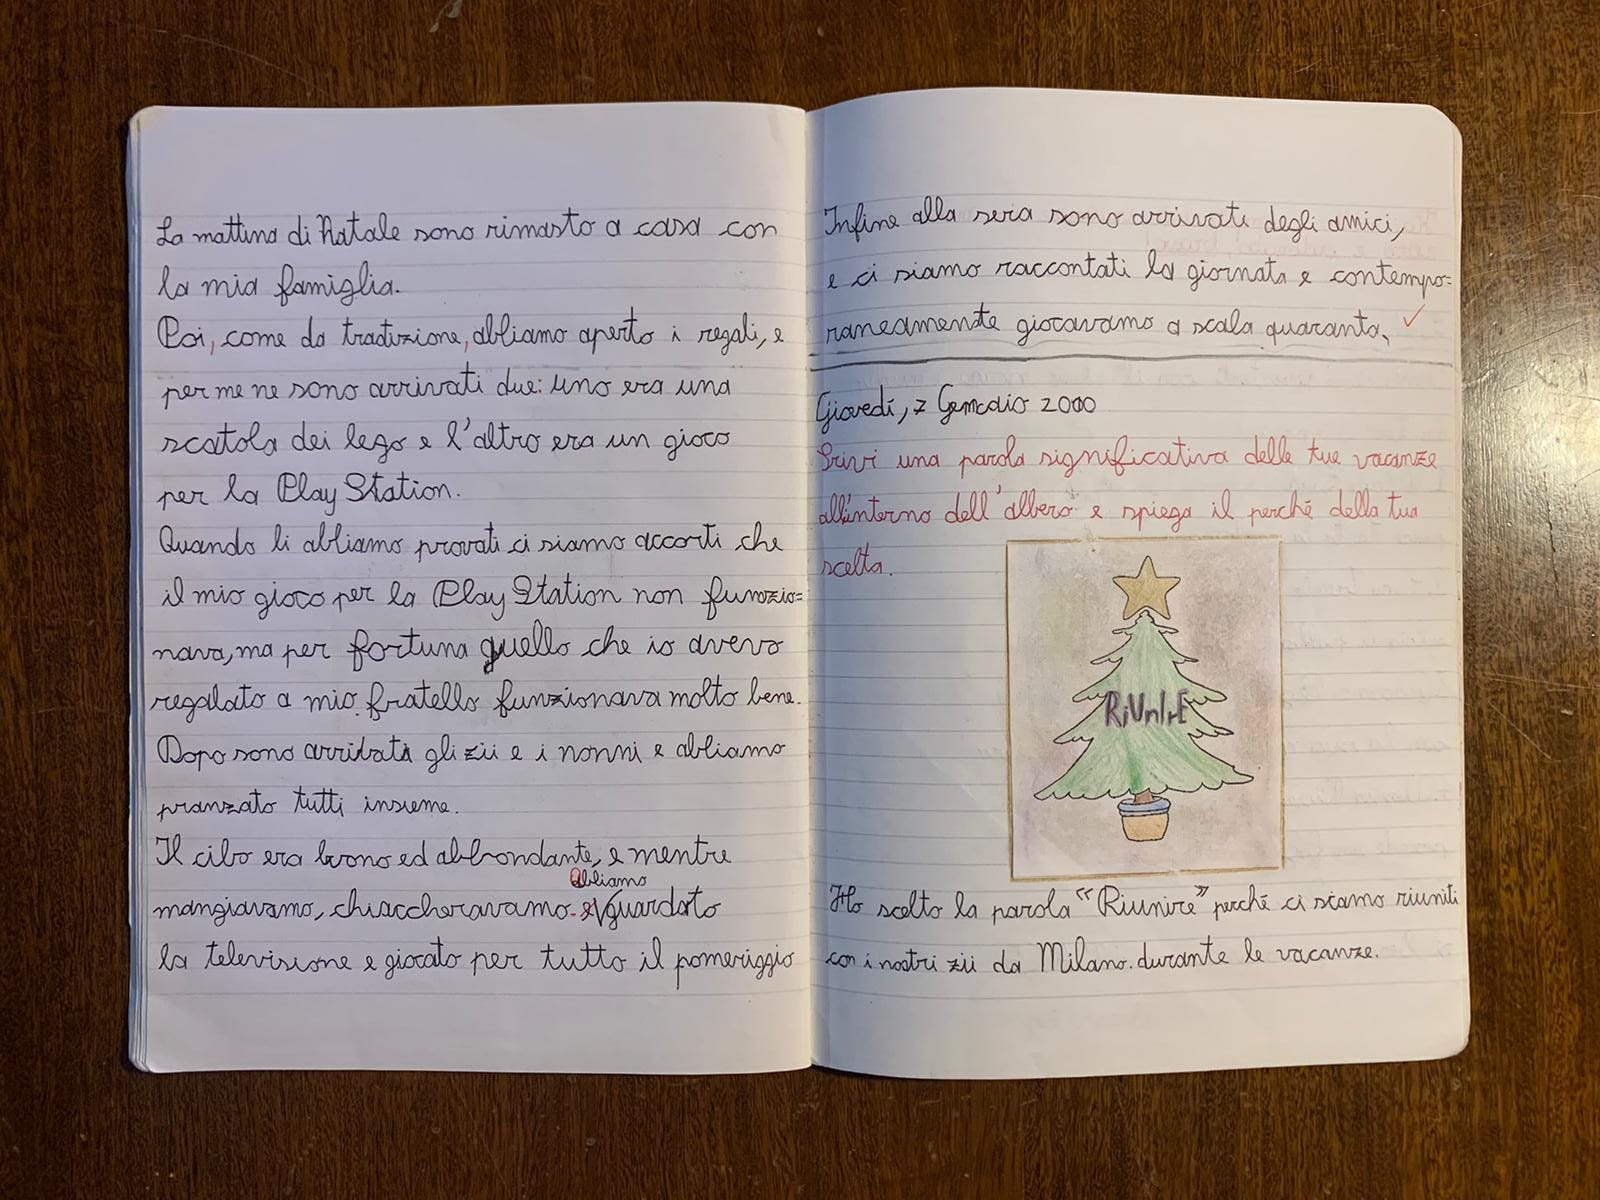 La mattina di Natale sono rimasto a casa con
la mia famiglia.
Poi, come da tradizione, abbiamo aperto i regali, e
per me ne sono arrivati due: uno era una
scatola dei lego e l'altro era un gioco
per la Play Station.
Quando li abbiamo provati ci siamo accorti che
il mio gioco per la Play Station non funzio=
nava, ma per fortuna quello che io avevo
regalato a mio fratello funzionava molto bene.
Dopo sono arrivati gli zii e i nonni e abbiamo
pranzato tutti insieme.
Il cibo era buono ed abbondante, e mentre
abbiamo
mangiavamo, chiaccheravamo e guardato
la televisione e giocato per tutto il pomeriggio
Infine alla sera sono arrivati degli amici,
e ci siamo raccontati la giornata e contempo=
raneamente giocavamo a scala quaranta.
Giovedí, 7 Gennaio 2000
Srivi una parola significativa delle tue vacanze
all'interno dell'albero e spiega il perché della tua
scelta.
RiUnIrE
Ho scelto la parola "Riunire" perché ci siamo riuniti
con i nostri zii da Milano. durante le vacanze.